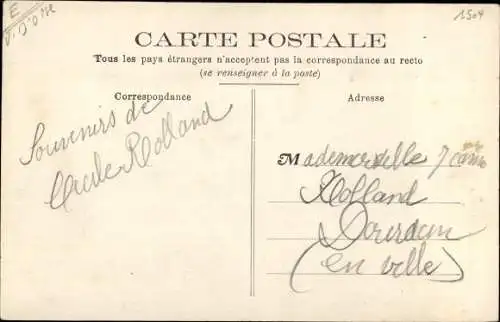 E
V. D'OISE
1504
CARTE POSTALE
Tous les pays étrangers n'acceptent pas la correspondance au recto
(se renseigner à la poste)
Correspondance
Adresse
Souvenirs de
Cécile Rolland
Mademoiselle
Rolland
Dourdan
(en ville)